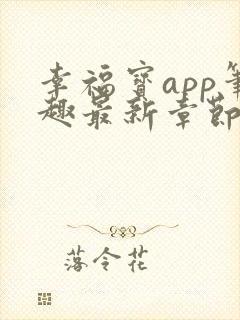 幸福宝app笔
趣最新章节
落令花